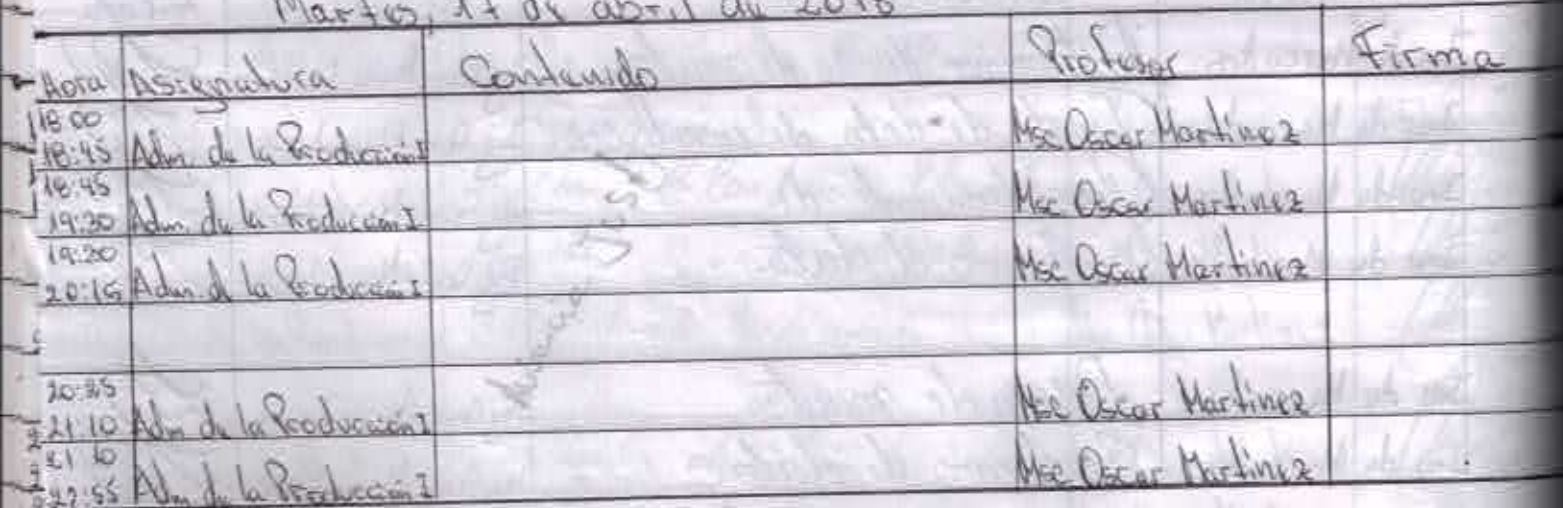 Martes, 17 de abril de 2018
Hora Asignatura Contenido Profesor Firma
18:00
18:45 Adm. de la Producción I Msc Oscar Martinez
18:45
19:30 Adm. de la Producción I Msc Oscar Martinez
19:30
20:15 Adm. de la Producción I Msc Oscar Martinez
20:25
21:10 Adm de la Producción I Msc Oscar Martinez
21:10
Adm. de la Producción I Msc Oscar Martinez